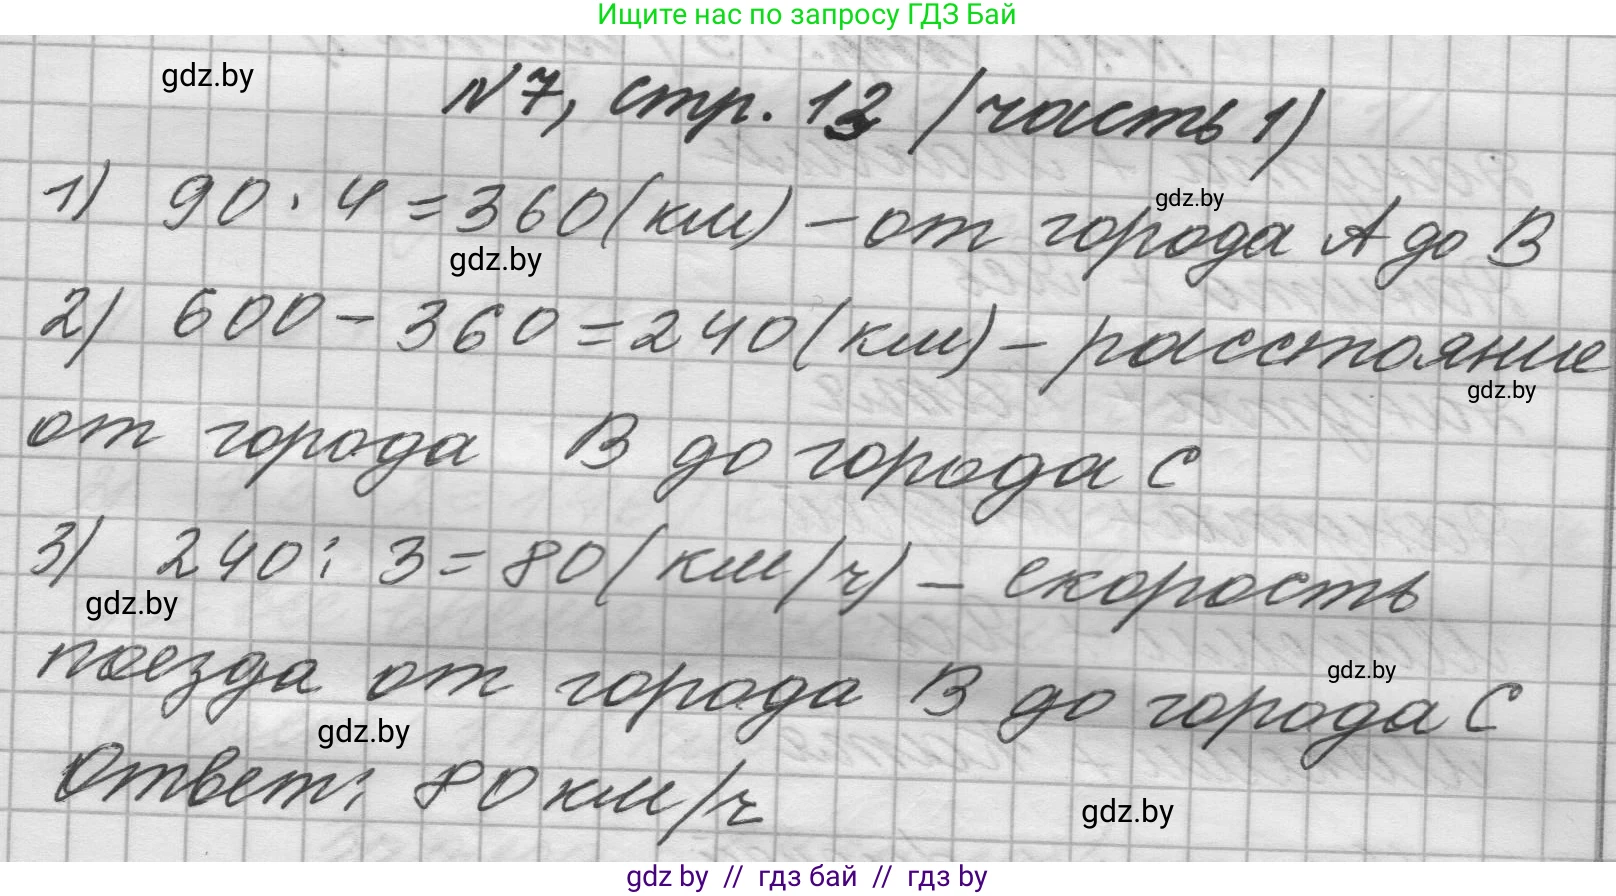 Ищите нас по запросу ГДЗ Бай
gdz.by
№7, стр. 13 (часть 1)
1) 90 · 4 = 360 (км) – от города А до В
gdz.by
gdz.by
2) 600 – 360 = 240 (км) – расстояние
gdz.by
от города В до города С
3) 240 : 3 = 80 (км/ч) – скорость
gdz.by
поезда от города В до города С
gdz.by
gdz.by
Ответ: 80 км/ч
gdz.by
gdz by // гдз бай // гдз by